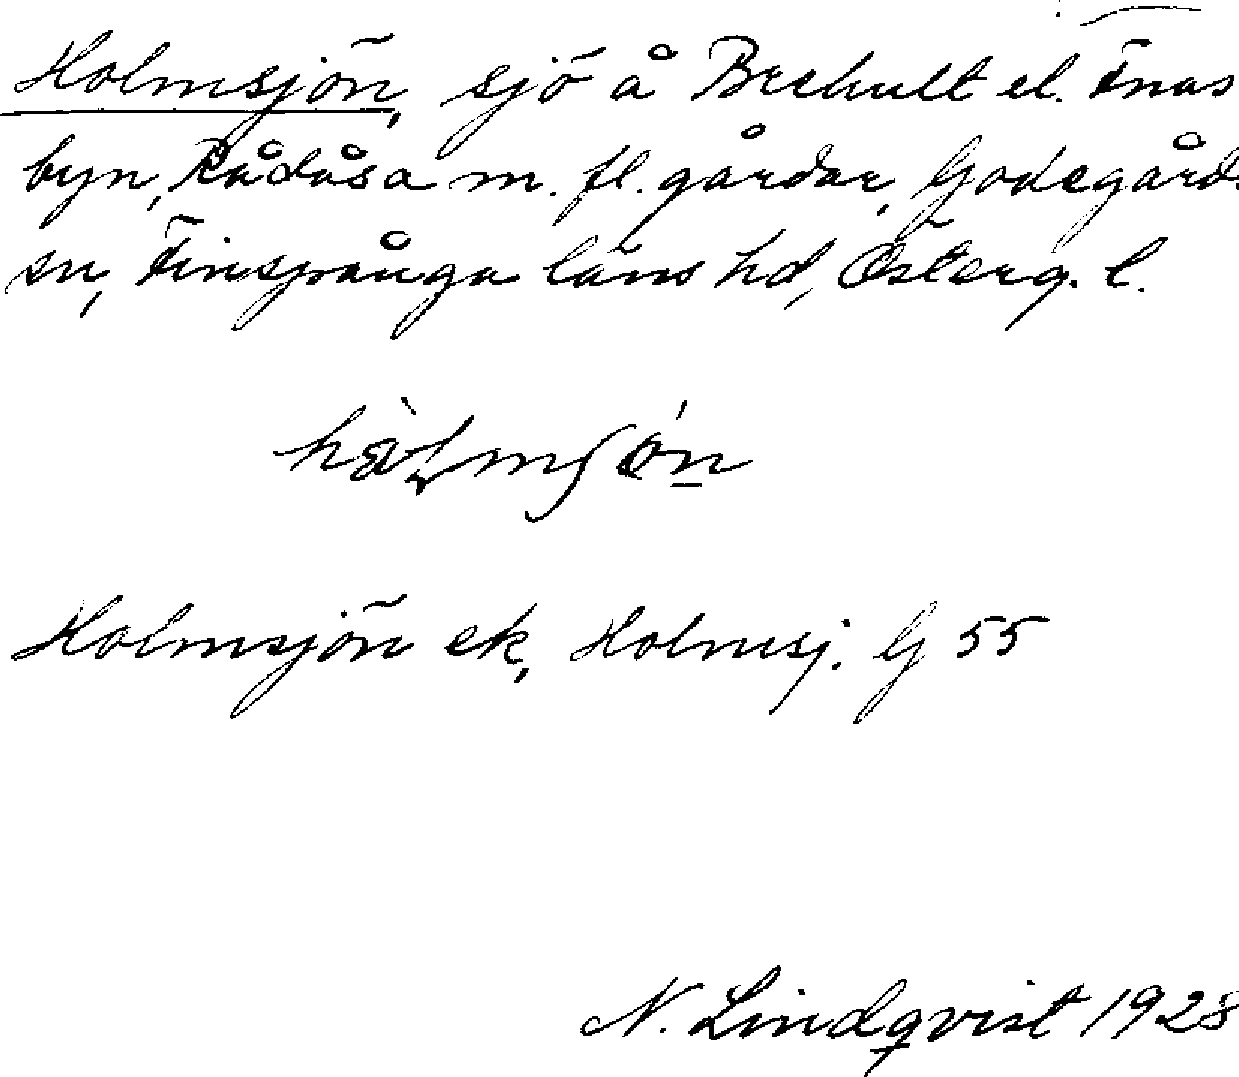 Holmsjön, sjö å Brehult el. Fnas
byn, Rådåsa m. fl. gårdar, Godegårds
sn, Finspånga läns hd, Österg. l.
Holmsjön ek, Holmsj. G 55
N. Lindqvist 1928